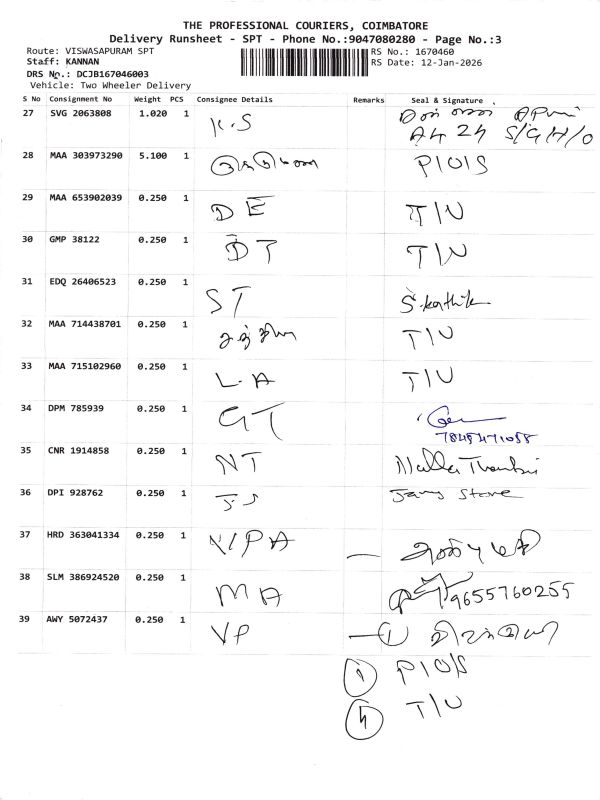 THE PROFESSIONAL COURIERS, COIMBATORE
Delivery Runsheet - SPT - Phone No.:9047080280 - Page No.:3
Route: VISWASAPURAM SPT
RS No.: 1670460
Staff: KANNAN
RS Date: 12-Jan-2026
DRS No.: DCJB167046003
Vehicle: Two Wheeler Delivery
S No Consignment No Weight PCS Consignee Details Remarks Seal & Signature
27 SVG 2063808 1.020 1 K.S
A4 24 S/G/H/O
28 MAA 303973290 5.100 1 P/O/S
29 MAA 653902039 0.250 1 DE T/N
30 GMP 38122 0.250 1 DT T/N
31 EDQ 26406523 0.250 1 ST S.karthik
32 MAA 714438701 0.250 1 T/U
33 MAA 715102960 0.250 1 L.A T/U
34 DPM 785939 0.250 1 GT
35 CNR 1914858 0.250 1 NT
36 DPI 928762 0.250 1 J.S
37 HRD 363041334 0.250 1 V/PA
38 SLM 386924520 0.250 1 MA 9655760255
39 AWY 5072437 0.250 1 VP
P/O/S
T/U